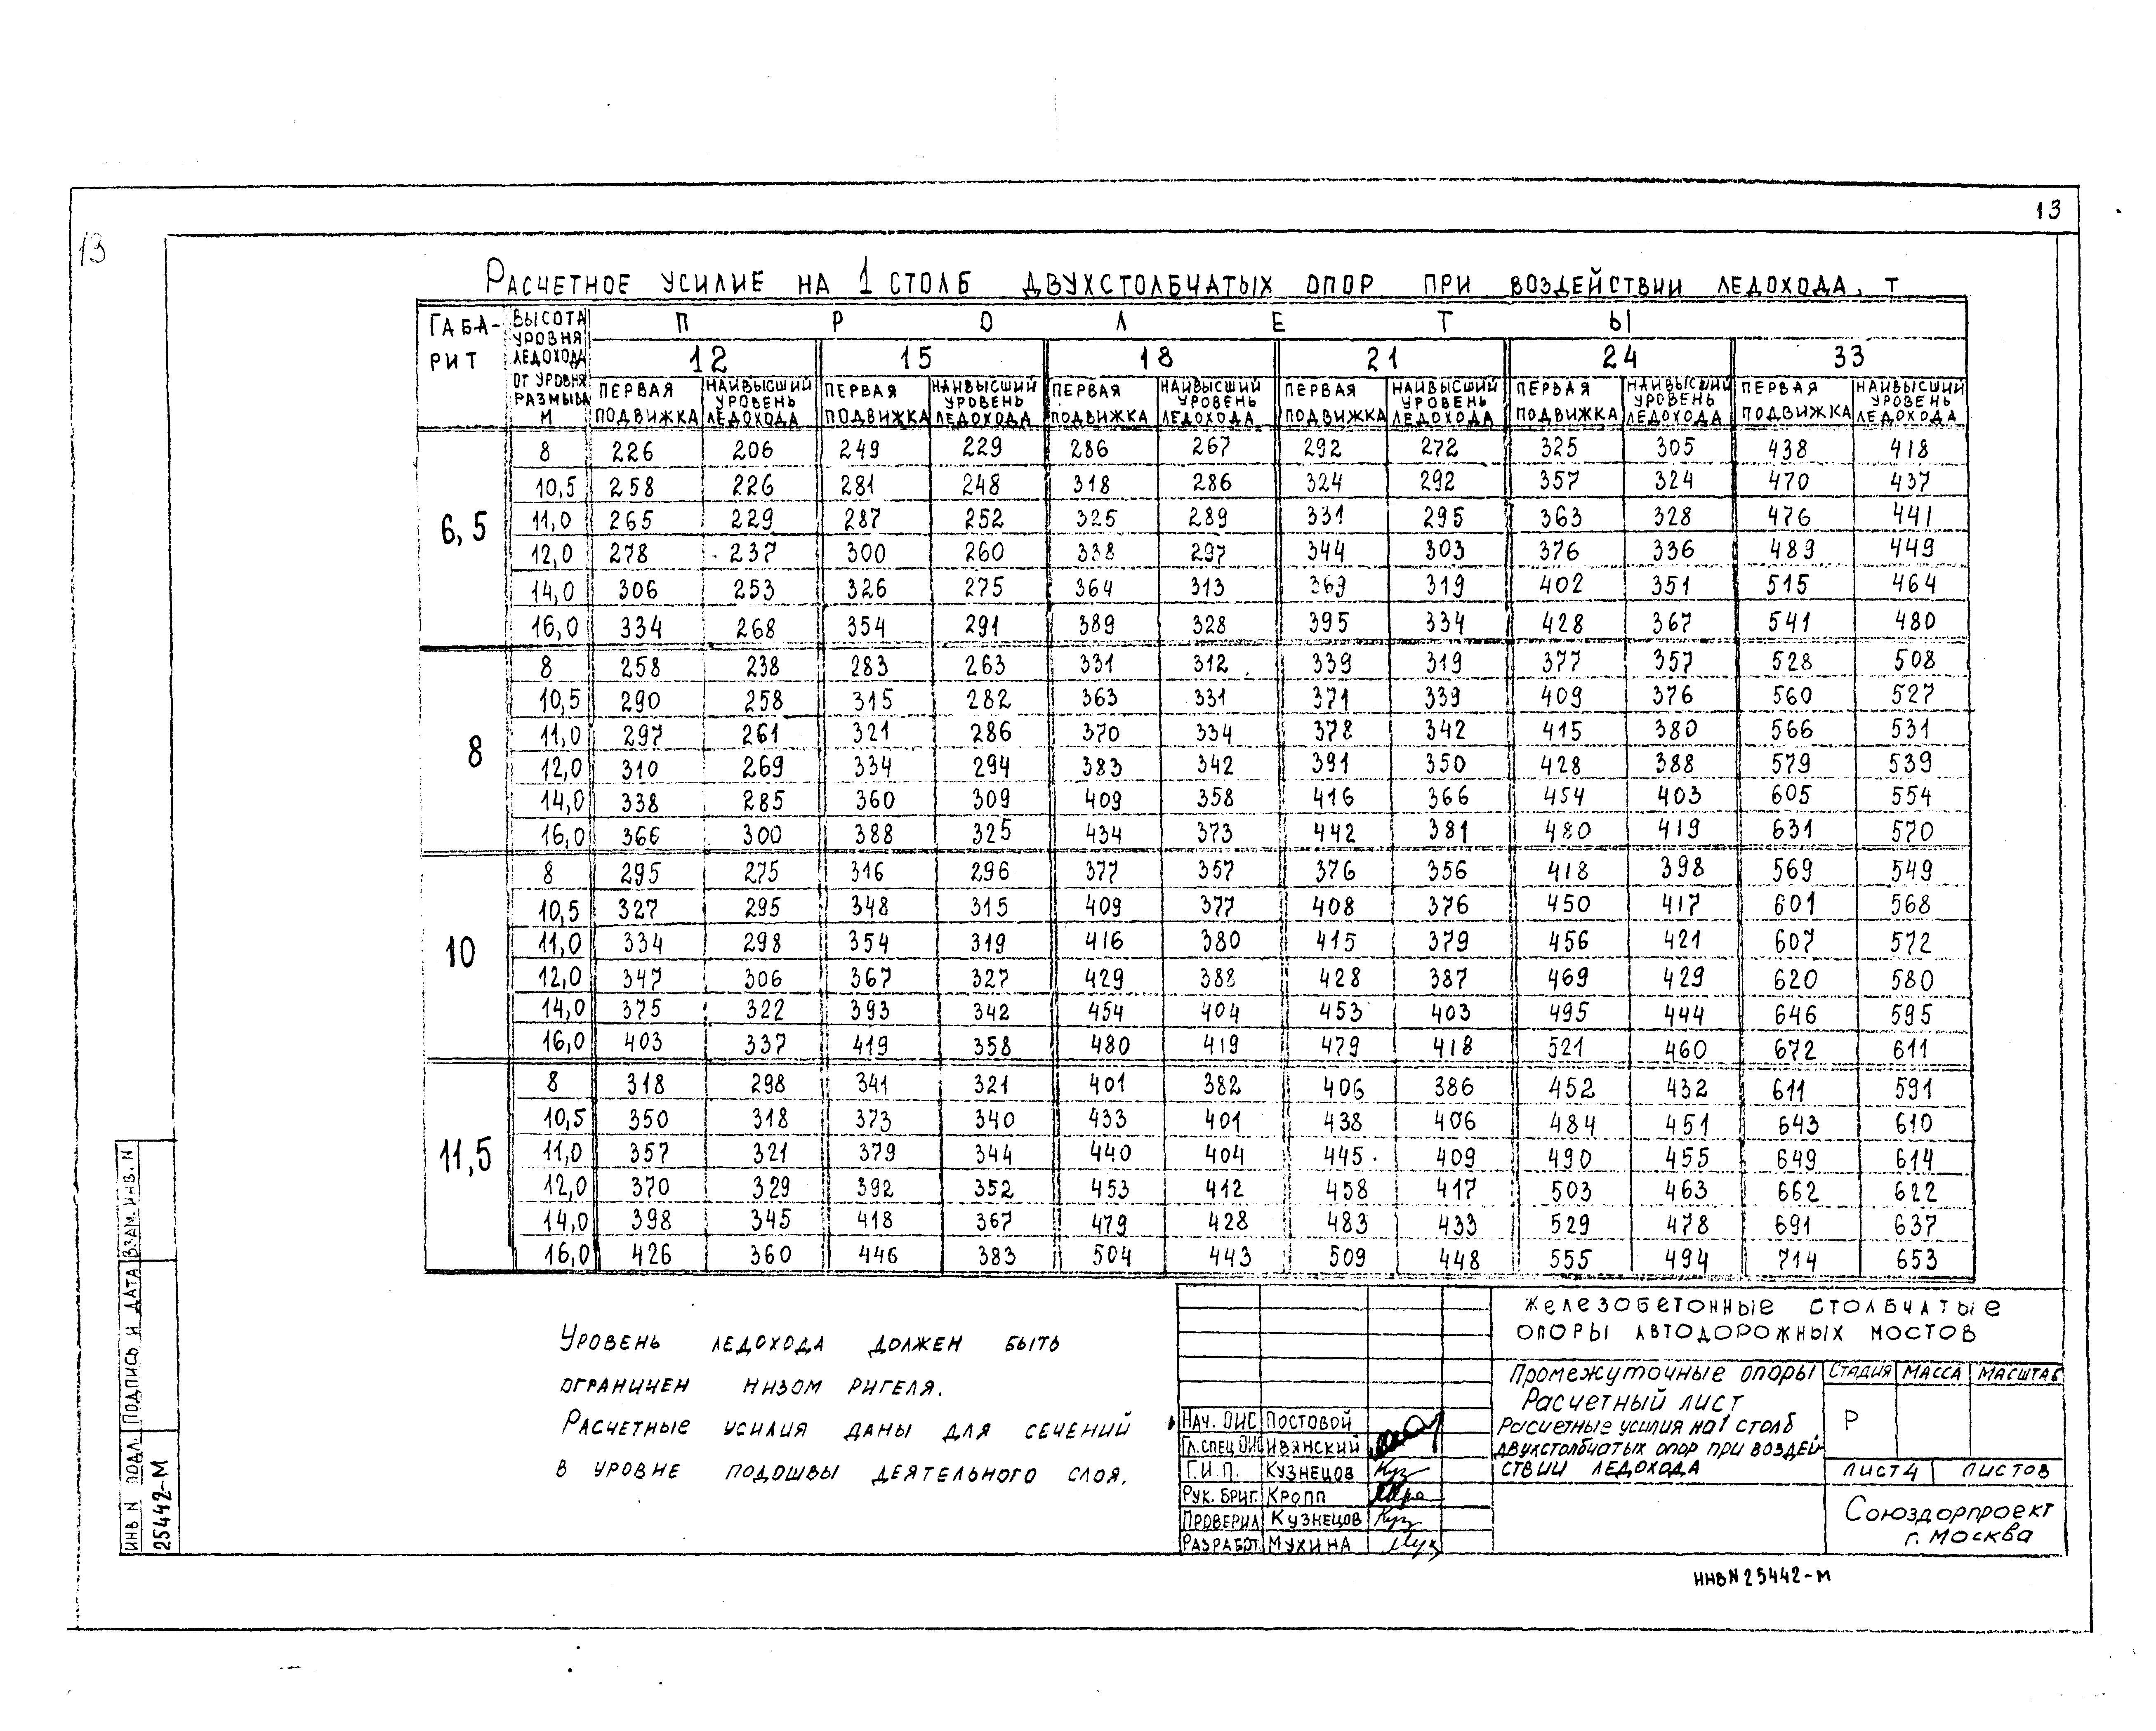 13
13
РАСЧЕТНОЕ УСИЛИЕ НА 1 СТОЛБ ДВУХСТОЛБЧАТЫХ ОПОР ПРИ ВОЗДЕЙСТВИИ ЛЕДОХОДА, Т
ГАБА-РИТ ВЫСОТА УРОВНЯ ЛЕДОХОДА ОТ УРОВНЯ РАЗМЫВА М ПРОЛЕТЫ
12 15 18 21 24 33
ПЕРВАЯ ПОДВИЖКА НАИВЫСШИЙ УРОВЕНЬ ЛЕДОХОДА ПЕРВАЯ ПОДВИЖКА НАИВЫСШИЙ УРОВЕНЬ ЛЕДОХОДА ПЕРВАЯ ПОДВИЖКА НАИВЫСШИЙ УРОВЕНЬ ЛЕДОХОДА ПЕРВАЯ ПОДВИЖКА НАИВЫСШИЙ УРОВЕНЬ ЛЕДОХОДА ПЕРВАЯ ПОДВИЖКА НАИВЫСШИЙ УРОВЕНЬ ЛЕДОХОДА ПЕРВАЯ ПОДВИЖКА НАИВЫСШИЙ УРОВЕНЬ ЛЕДОХОДА
6,5
8 226 206 249 229 286 267 292 272 325 305 438 418
10,5 258 226 281 248 318 286 324 292 357 324 470 437
11,0 265 229 287 252 325 289 331 295 363 328 476 441
12,0 278 237 300 260 338 297 344 303 376 336 489 449
14,0 306 253 326 275 364 313 369 319 402 351 515 464
16,0 334 268 354 291 389 328 395 334 428 367 541 480
8
8 258 238 283 263 331 312 339 319 377 357 528 508
10,5 290 258 315 282 363 331 371 339 409 376 560 527
11,0 297 261 321 286 370 334 378 342 415 380 566 531
12,0 310 269 334 294 383 342 391 350 428 388 579 539
14,0 338 285 360 309 409 358 416 366 454 403 605 554
16,0 366 300 388 325 434 373 442 381 480 419 631 570
10
8 295 275 316 296 377 357 376 356 418 398 569 549
10,5 327 295 348 315 409 377 408 376 450 417 601 568
11,0 334 298 354 319 416 380 415 379 456 421 607 572
12,0 347 306 367 327 429 388 428 387 469 429 620 580
14,0 375 322 393 342 454 404 453 403 495 444 646 595
16,0 403 337 419 358 480 419 479 418 521 460 672 611
11,5
8 318 298 341 321 401 382 406 386 452 432 611 591
10,5 350 318 373 340 433 401 438 406 484 451 643 610
11,0 357 321 379 344 440 404 445 409 490 455 649 614
12,0 370 329 392 352 453 412 458 417 503 463 662 622
14,0 398 345 418 367 479 428 483 433 529 478 691 637
16,0 426 360 446 383 504 443 509 448 555 494 714 653
УРОВЕНЬ ЛЕДОХОДА ДОЛЖЕН БЫТЬ
ОГРАНИЧЕН НИЗОМ РИГЕЛЯ.
РАСЧЕТНЫЕ УСИЛИЯ ДАНЫ ДЛЯ СЕЧЕНИЙ
В УРОВНЕ ПОДОШВЫ ДЕЯТЕЛЬНОГО СЛОЯ.
ЖЕЛЕЗОБЕТОННЫЕ СТОЛБЧАТЫЕ
ОПОРЫ АВТОДОРОЖНЫХ МОСТОВ
Промежуточные опоры
Расчетный лист
Расчетные усилия на 1 столб
двухстолбчатых опор при воздей
ствии ледохода
СТАДИЯ МАССА МАСШТАБ
Р
ЛИСТ 4 ЛИСТОВ
Союздорпроект
г. Москва
НАЧ. ОИС ПОСТОВОЙ
ГЛ. СПЕЦ ОИС ИВЯНСКИЙ
Г.И.П. КУЗНЕЦОВ Куз
РУК. БРИГ. КРОПП
ПРОВЕРИЛ КУЗНЕЦОВ Куз
РАЗРАБОТ. МУХИНА Мух
ИНВ N 25442-М
ИНВ N ПОДЛ. ПОДПИСЬ И ДАТА ВЗАМ. ИНВ. N
25442-М